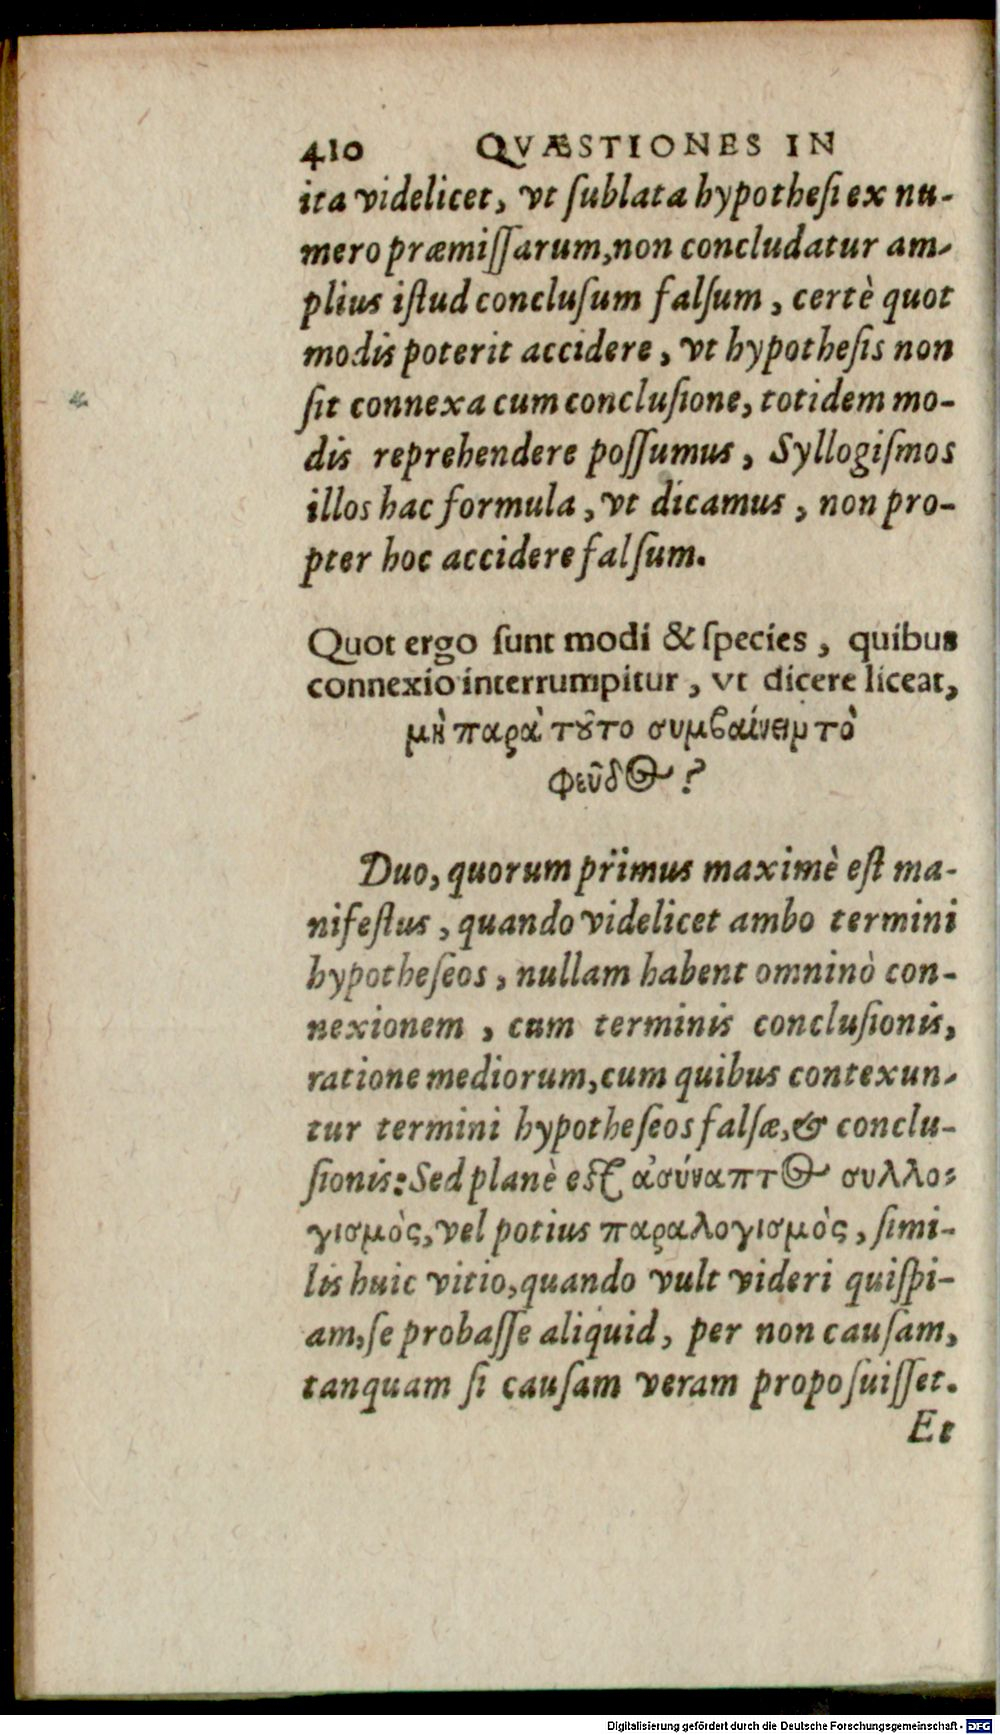 410 QVÆSTIONES IN
ita videlicet, vt ſublata hypotheſi ex nu-
mero præmiſſarum, non concludatur am-
plius iſtud concluſum falſum, certè quot
modis poterit accidere, vt hypotheſis non
ſit connexa cum concluſione, totidem mo-
dis reprehendere poſſumus, Syllogiſmos
illos hac formula, vt dicamus, non pro-
pter hoc accidere falſum.
Quot ergo ſunt modi & ſpecies, quibus
connexio interrumpitur, vt dicere liceat,
μὴ παρὰ τȣ͂το συμβαίνειμ τὸ
φεῦδος?
Duo, quorum primus maximè eſt ma-
nifeſtus, quando videlicet ambo termini
hypotheſeos, nullam habent omninò con-
nexionem, cum terminis concluſionis,
ratione mediorum, cum quibus contexun-
tur termini hypotheſeos falſæ, & conclu-
ſionis: Sed planè eſt ἀσύναπτος συλλο-
γισμὸς, vel potius παραλογισμὸς, ſimi-
lis huic vitio, quando vult videri quiſpi-
am, ſe probaſſe aliquid, per non cauſam,
tanquam ſi cauſam veram propoſuiſſet.
Et
Digitalisierung gefördert durch die Deutsche Forschungsgemeinschaft - DFG